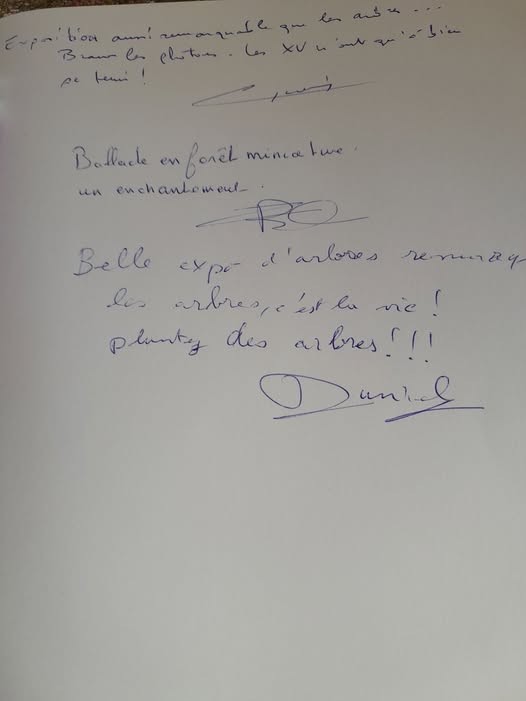 Exposition aussi remarquable que les arbres...
Bravo les photos. Les XV n'ont qu'à bien
se tenir !
Ballade en forêt miniature.
un enchantement.
BO
Belle expo d'arbres remarq
les arbres, c'est la vie !
plantez des arbres ! ! !
Daniel